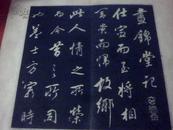 晝錦堂記
仕宦而至將相
富貴而歸故鄉
此人情之所榮
而今昔之所同
也蓋士方窮時